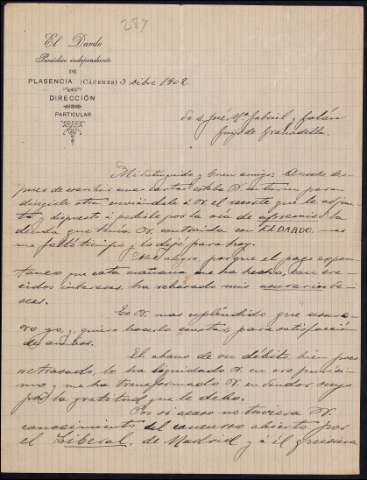 287
El Dardo
Periódico independiente
DE
PLASENCIA (CÁCERES) 3 dibre 1902
DIRECCIÓN
PARTICULAR
Sr. D. José Mª Gabriel y Galán
Guijo de Granadilla
Mi distinguido y buen amigo: Acabado de
una carta estaba V. en turno para
dirigirle otra enviándole á V. el recorte que le adjun-
to y dispuesto á pedirle por la vía de apremio la
deuda que tenía V. contraida con EL DARDO. mas
me faltó tiempo y lo dejé para hoy.
Me alegro porque el pago espon-
taneo que esta mañana me ha hecho, con cre-
cidos intereses, ha rebasado mis
Es V. mas espléndido que
yo, y quiero hacerlo constar para satisfacción
de ambos.
El abono de su débito, bien poco
retrasado, lo ha liquidado V. en
mo y me ha transformado V. en deudor suyo
por la gratitud que le debo.
Por si acaso no tuviera V.
conocimiento del concurso abierto por
el Liberal, de Madrid y á él quisiera